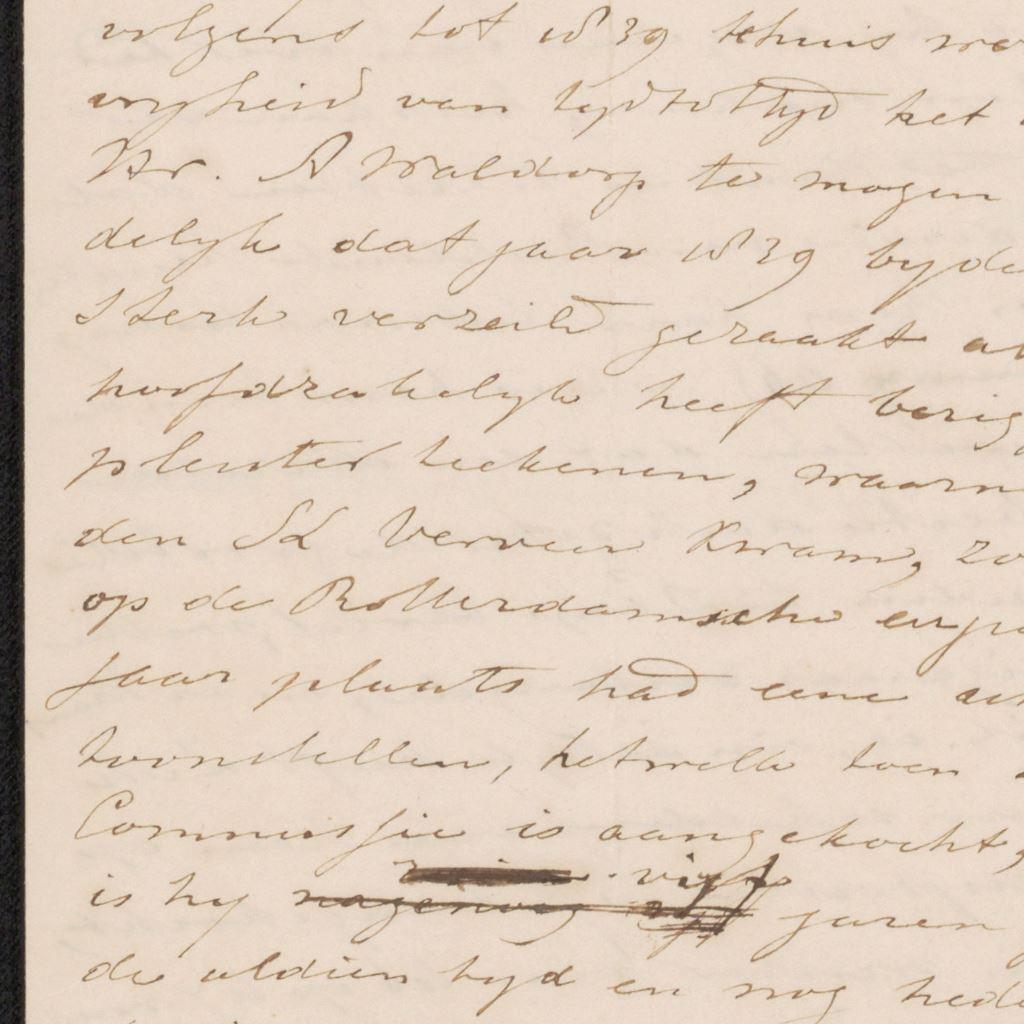 volgens tot 1839 thuis
vryheid van tyd tot tyd het
Hr. A Waldorp te mogen
delyk dat jaar 1839 by de
Sterk verzeild geraakt
hoofdzakelyk heeft bezig
pleister teekenen, waarn
den SL Verveer kwam, zo
op de Rotterdamsche exp
jaar plaats had eene
toonstellen, hetwelk toen
Commissie is aangekocht,
vijf
is hy nagenoeg vyf jaren
de aldien tyd en nog hed